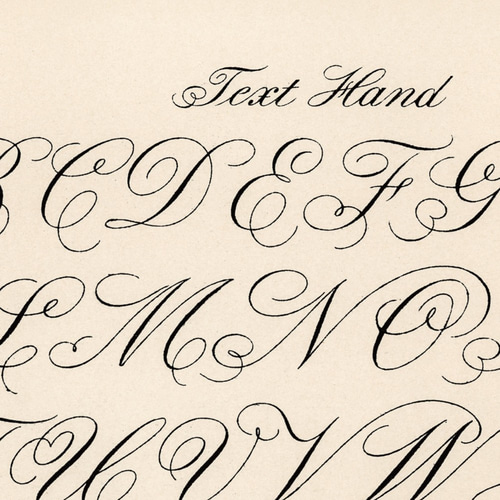 Text Hand
B C D E F G
L M N O
T U V W